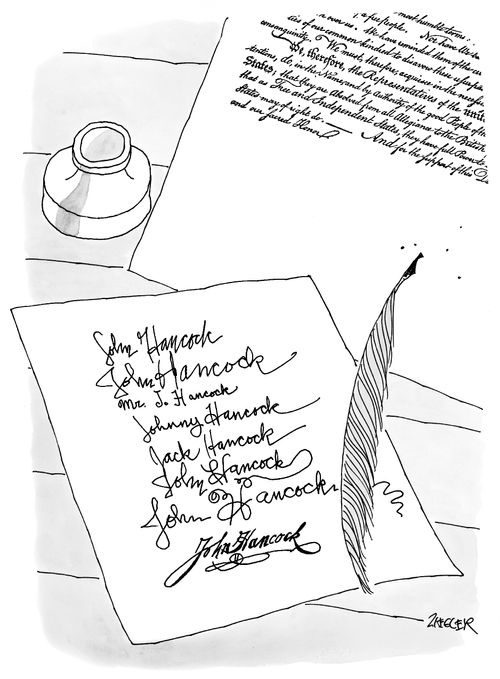 most humble terms:
a free people. Nor have We
us. We have reminded them of the
of our common kindred to disavow these
consanguinity. We must, therefore, acquiesce in the
We, therefore, the Representatives of the united
States, that they are Absolved from all Allegiance to the British
that as Free and Independent States, they have full Power to
States may of right do. — And for the support of this
and our sacred Honor
John Hancock
John Hancock
Mr. J. Hancock
Johnny Hancock
Jack Hancock
John Hancock
John Hancock
John Hancock
ZIEGLER